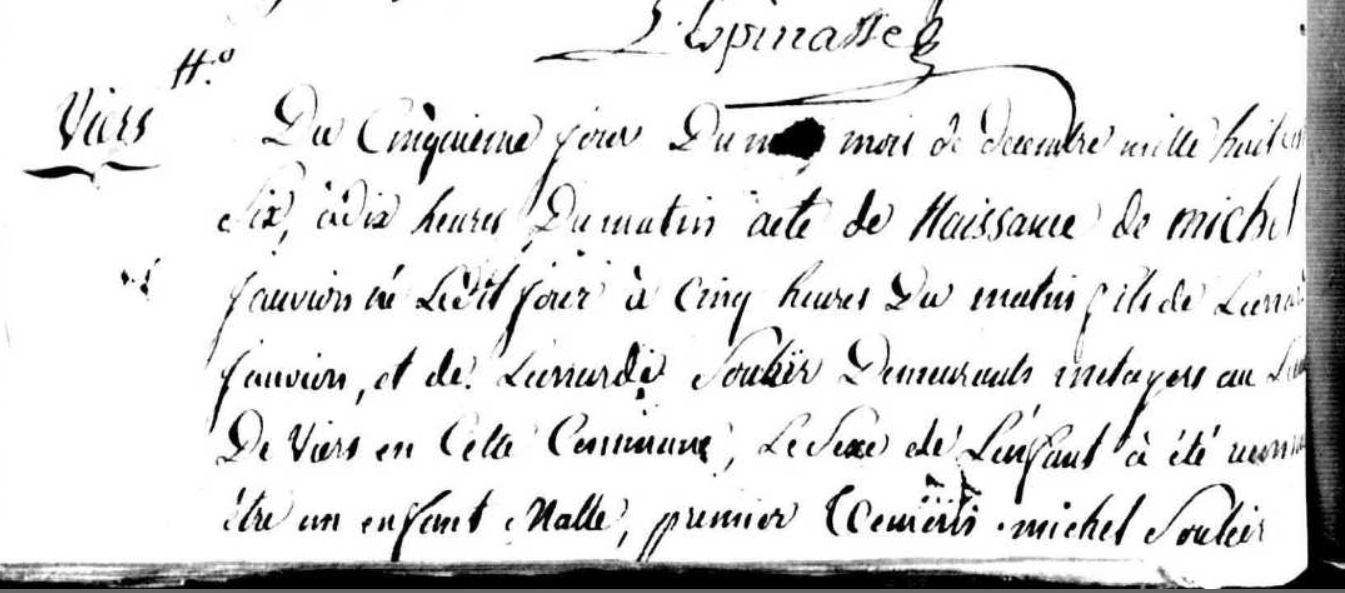 L'Epinasse
N.o
Viers
Du Cinquieme jour Du mois de Decembre mille huit cen
Six, à Dix heures Du matin acte de Naissance de michel
fauvion né Ledit jour à Cinq heures Du matin fils de Leonard
fauvion, et de Leonarde Soulier Demeurants metayers au Lieu
De Viers en Cette Commune, Le Sexe de L'enfant à été reconnu
être un enfant Malle, premier témoin michel Soulier